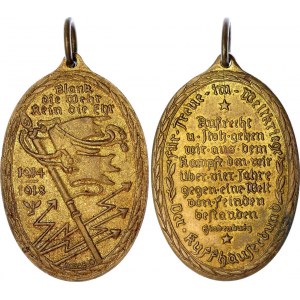 Blank
die Wehr
Rein die Ehr
1914
1918
Für Treue im Weltkriege
Aufrecht
u. stolz gehen
wir aus dem
Kampfe den wir
über vier Jahre
gegen eine Welt
von Feinden
bestanden
Hindenburg
Der Kyffhäuser-Bund